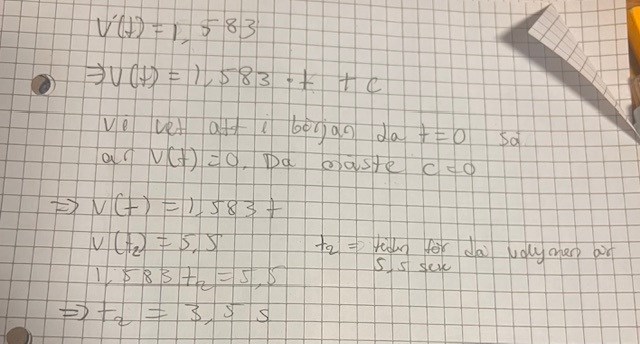 V'(t) = 1,583
⇒ V(t) = 1,583 · t + c
Vi vet att i början då t=0 så
är V(t)=0. Då måste c=0
⇒ V(t) = 1,583 t
V(t₂) = 5,5 t₂ = tiden för då volymen är
1,583 t₂ = 5,5 5,5
⇒ t₂ = 3,5 s